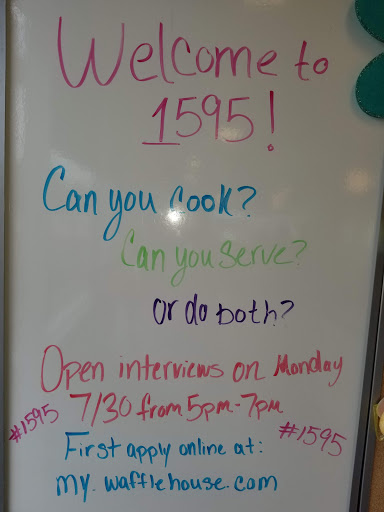 Welcome to
1595!
Can you cook?
Can you serve?
or do both?
Open interviews on Monday
7/30 from 5pm-7pm
#1595
#1595
First apply online at:
my.wafflehouse.com